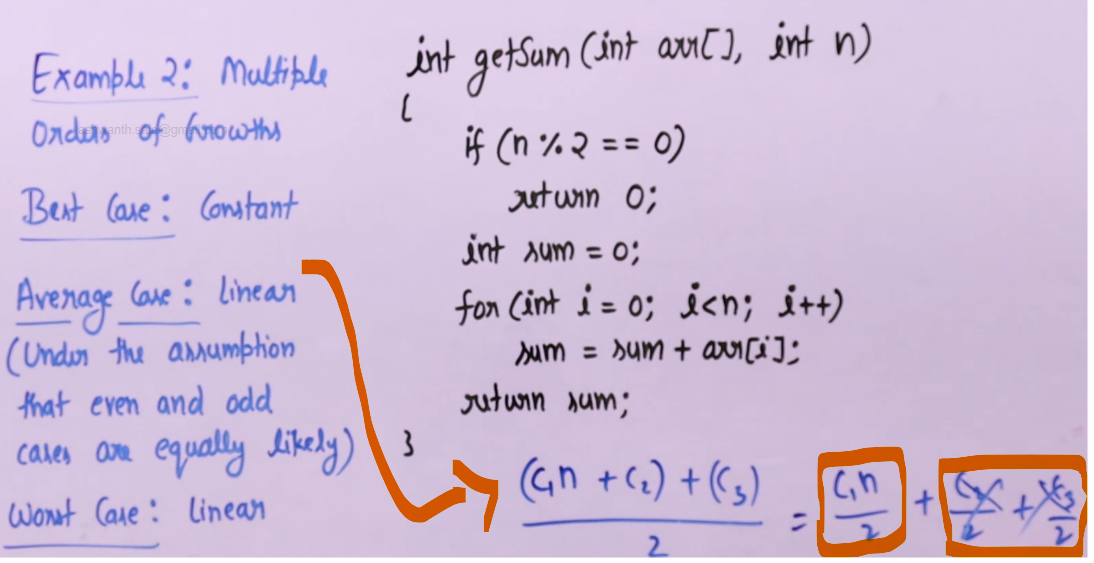 Example 2: Multiple
Orders of Growths
Best Case: Constant
Average Case: Linear
(Under the assumption
that even and odd
cases are equally likely)
Worst Case: Linear
int getSum(int arr[], int n)
{
if (n % 2 == 0)
return 0;
int sum = 0;
for (int i = 0; i<n; i++)
sum = sum + arr[i];
return sum;
}
(C₁n + C₂) + (C₃) / 2 = C₁n / 2 + C₂ / 2 + C₃ / 2